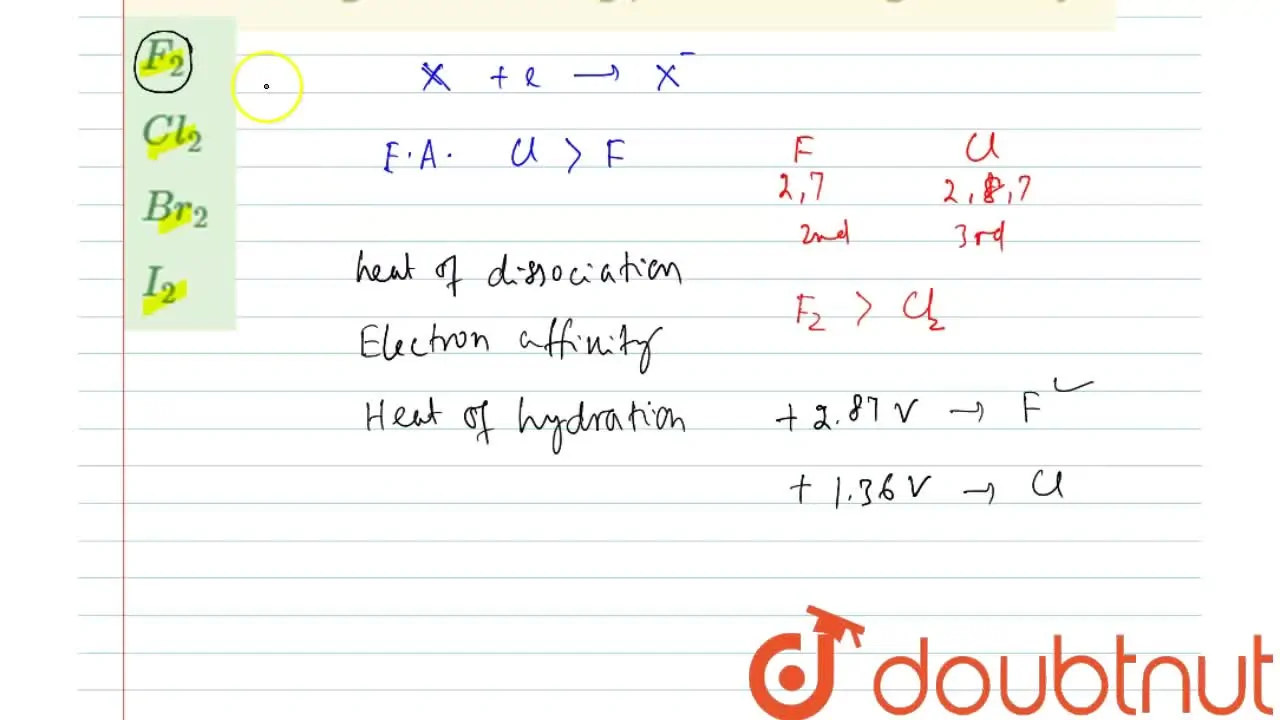 F₂
Cl₂
Br₂
I₂
X + e → X⁻
E.A. Cl > F
F Cl
2,7 2,8,7
2nd 3rd
heat of dissociation
F₂ > Cl₂
Electron affinity
Heat of hydration
+ 2.87 V → F ✓
+ 1.36 V → Cl
doubtnut